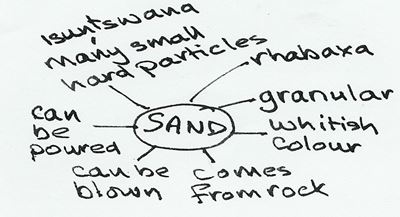 isuntswana
many small
hard particles
rhabaxa
granular
SAND
can
be
poured
whitish
colour
can be
blown
comes
from rock